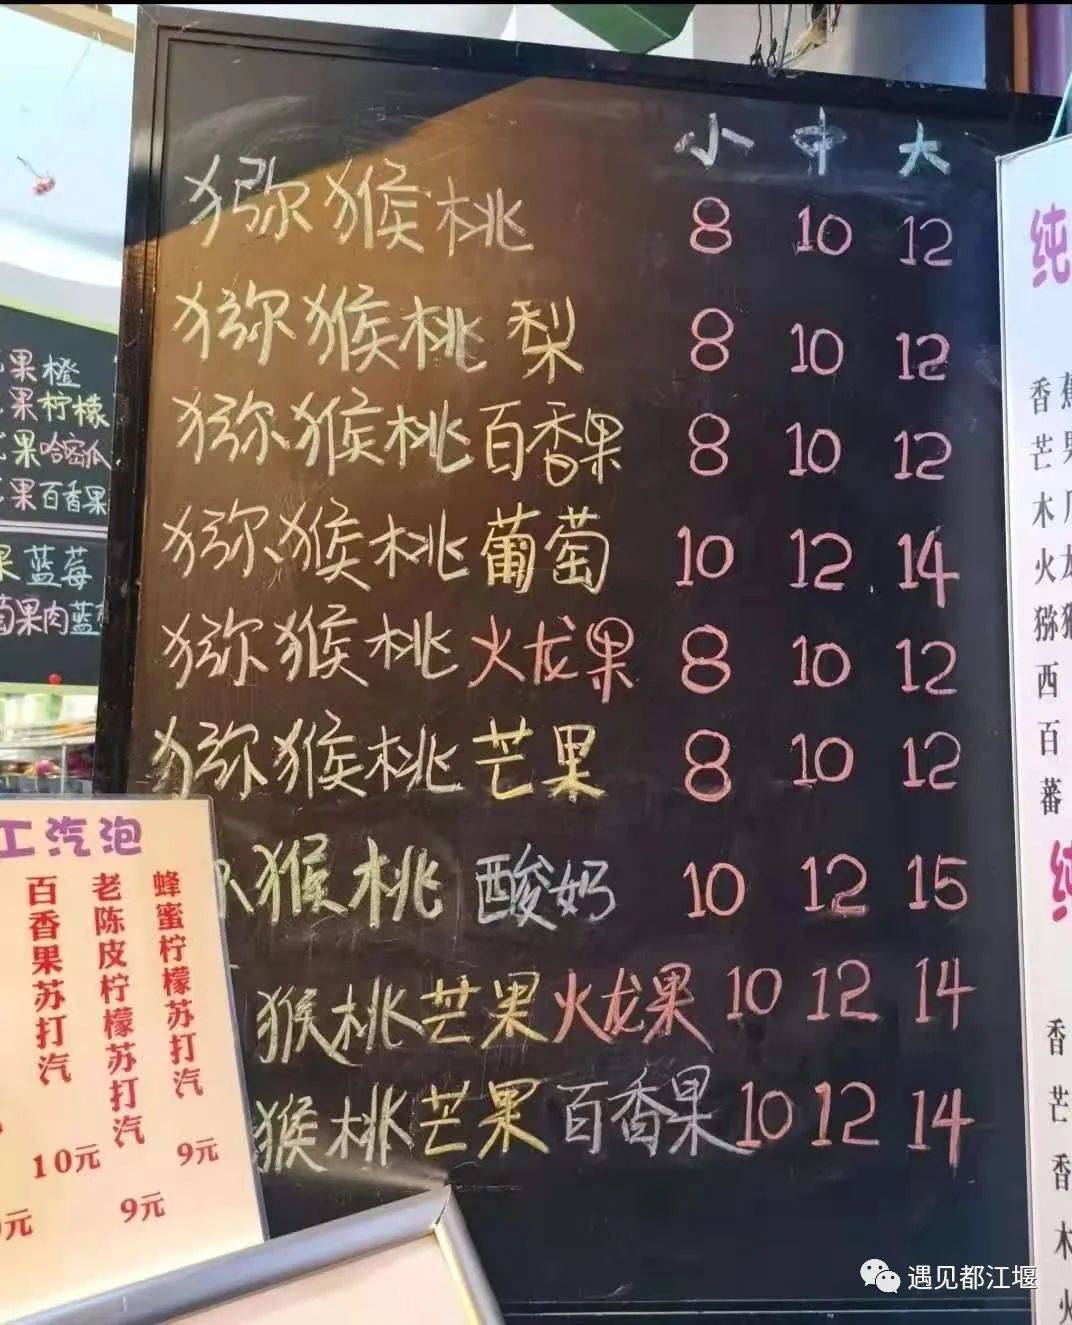 小 中 大
猕猴桃 8 10 12
猕猴桃梨 8 10 12
猕猴桃百香果 8 10 12
猕猴桃葡萄 10 12 14
猕猴桃火龙果 8 10 12
猕猴桃芒果 8 10 12
猴桃 酸奶 10 12 15
猴桃芒果火龙果 10 12 14
猴桃芒果百香果 10 12 14
果橙
果柠檬
果哈密瓜
果百香果
果蓝莓
萄果肉蓝
工汽泡
蜂蜜柠檬苏打汽
9元
老陈皮柠檬苏打汽
9元
百香果苏打汽
10元
元
纯
香蕉
芒果
木
火龙
猕猴
西
百
蕃
纯
香
芒
香
木
火
遇见都江堰